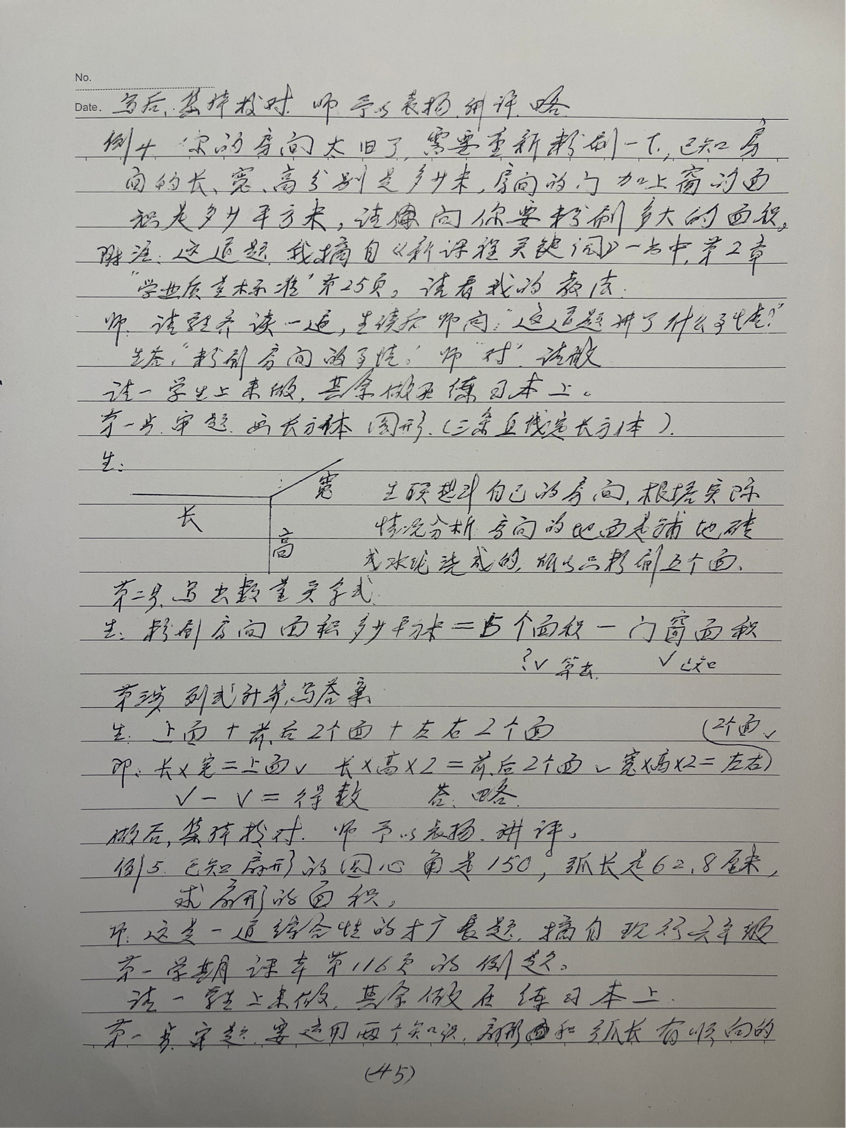 No.
Date. 写后,集体校对.师予以表扬.讲评.略.
例4.你的房间太旧了,需要重新粉刷一下,已知房
间的长、宽、高分别是多少米,房间的门加上窗的面
积是多少平方米,请问你要粉刷多大的面积,
附注:这道题,我摘自《新课程关键词》一书中,第2章
"学业质量标准"第25页。请看我的教法:
师:请轻齐读一遍,生读后师问:"这道题讲了什么事情?"
生答:"粉刷房间的事情."师"对".请做
请一学生上来做,其余做在练习本上。
第一步.审题.画长方体图形.(三条直线定长方体).
生:
宽
长
高
生联想到自己的房间,根据实际
情况分析房间的地面是铺地砖
或水泥浇成的,所以只粉刷五个面.
第二步,写出数量关系式
生:粉刷房间面积多少平方米=5个面积-门窗面积
?√算出. √已知
第三步 列式计算,写答案
生:上面+前后2个面+左右2个面
(2个面√
即:长×宽=上面√ 长×高×2=前后2个面√宽×高×2=左右)
√-√=得数 答:略.
做后,集体校对.师予以表扬.讲评。
例5.已知扇形的圆心角是150°,弧长是62.8厘米,
求扇形的面积。
师:这是一道综合性的扩展题.摘自现行六年级
第一学期课本第116页的例题。
请一学生上来做,其余做在练习本上.
第一步,审题.要运用两个知识,扇形和弧长有顺向的
(45)